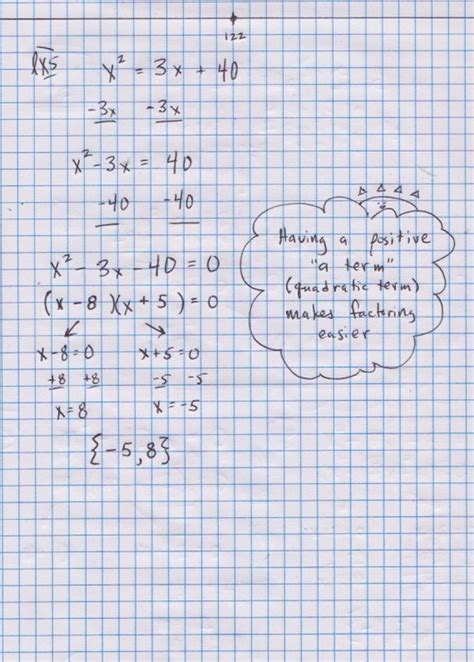 122
ex5 x² = 3x + 40
-3x -3x
x² - 3x = 40
-40 -40
x² - 3x - 40 = 0
(x - 8)(x + 5) = 0
x - 8 = 0 x + 5 = 0
+8 +8 -5 -5
x = 8 x = -5
{-5, 8}
Having a positive
"a term"
(quadratic term)
makes factoring
easier